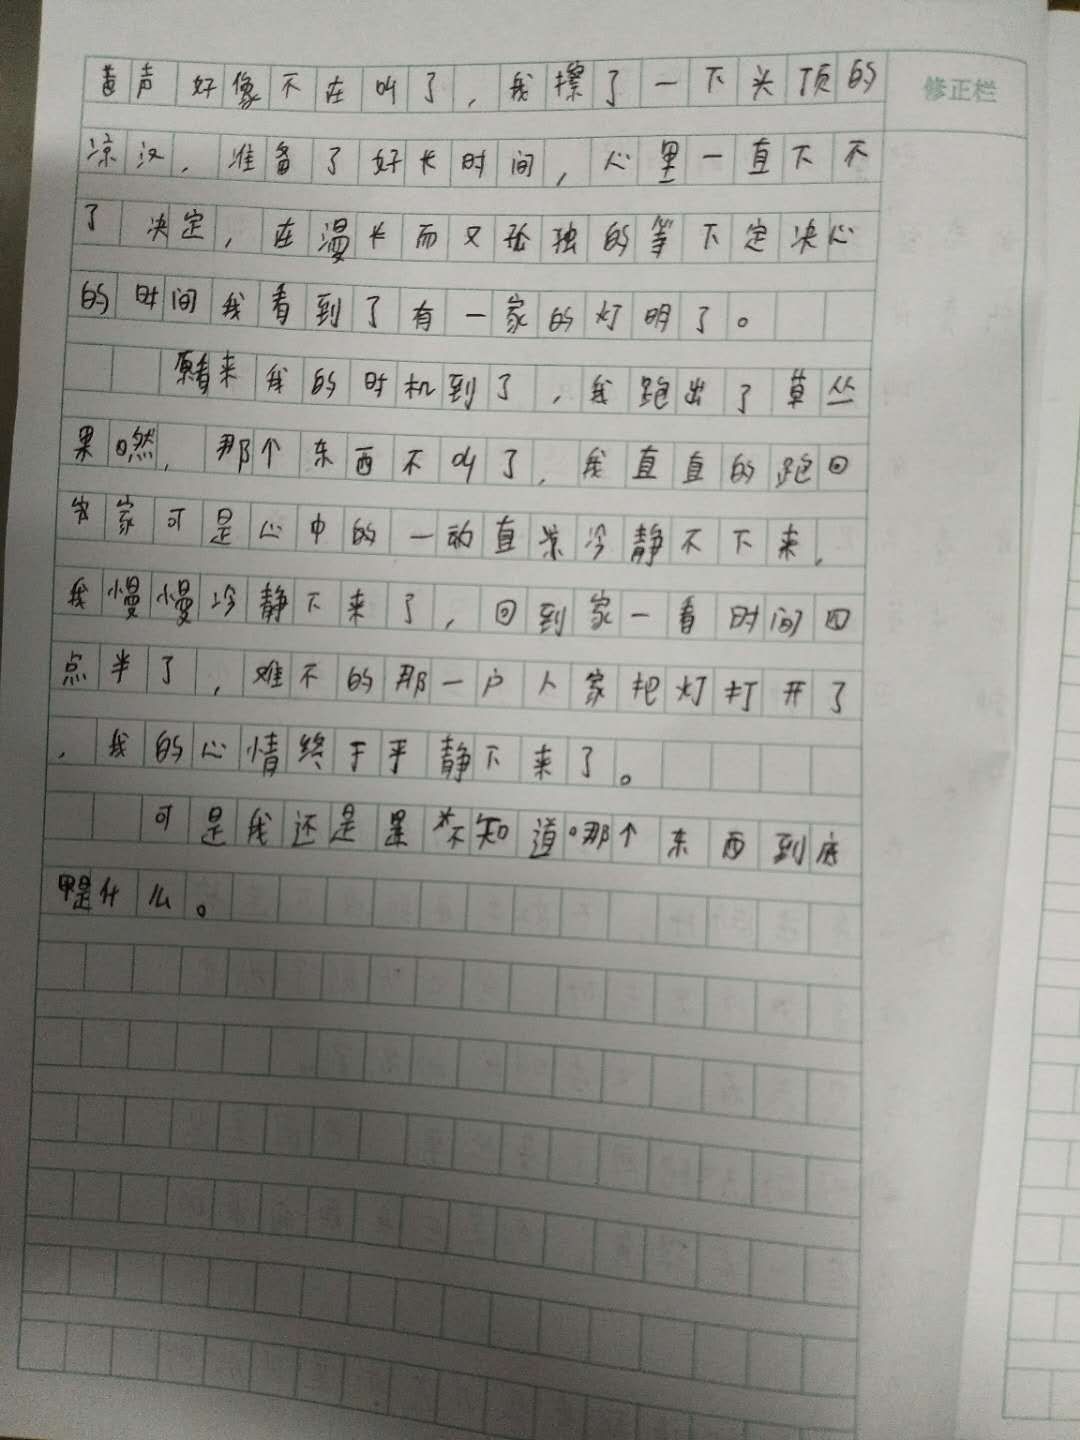 声好像不在叫了，我擦了一下头顶的
修正栏
凉汉，准备了好长时间，心里一直下不
了决定，在漫长而又孤独的等下定决心
的时间我看到了有一家的灯明了。
看来我的时机到了，我跑出了草丛
果然，那个东西不叫了，我直直的跑回
家可是心中的一动直冷静不下来，
我慢慢冷静下来了，回到家一看时间四
点半了，难不的那一户人家把灯打开了
，我的心情终于平静下来了。
可是我还是不知道那个东西到底
是什么。